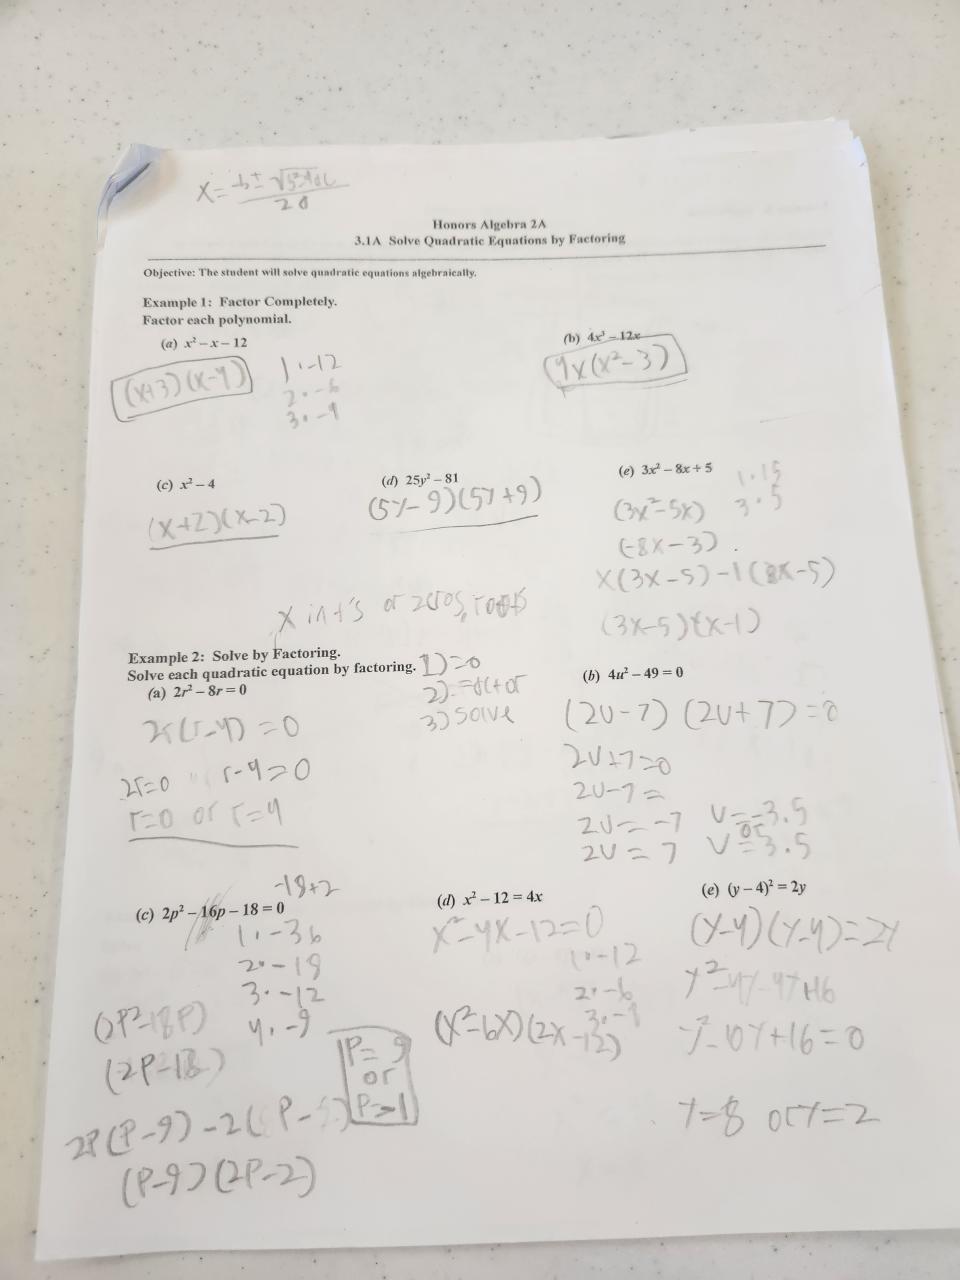 x = -b ± √b²-4ac
2a
Honors Algebra 2A
3.1A Solve Quadratic Equations by Factoring
Objective: The student will solve quadratic equations algebraically.
Example 1: Factor Completely.
Factor each polynomial.
(a) x² – x – 12
(x+3)(x-4)
1·-12
2·-6
3·-4
(b) 4x³ – 12x
4x(x²-3)
(c) x² – 4
(x+2)(x-2)
(d) 25y² – 81
(5y-9)(5y+9)
(e) 3x² – 8x + 5
1·15
3·5
(3x²-5x)
(-8x-3)
x(3x-5)-1(3x-5)
(3x-5)(x-1)
x int's or zeros, roots
Example 2: Solve by Factoring.
Solve each quadratic equation by factoring.
1) =0
2) factor
3) solve
(a) 2r² – 8r = 0
2r(r-4) = 0
2r=0 r-4=0
r=0 or r=4
(b) 4u² – 49 = 0
(2u-7) (2u+7) = 0
2u+7=0
2u-7=
2u = -7 u=-3.5
or
2u = 7 u=3.5
(c) 2p² – 16p – 18 = 0
-18+2
1·-36
2·-18
3·-12
4·-9
(2p²-18p)
(2p-18)
2p(p-9)-2(p-
(p-9)(2p-2)
p= 9
or
p=1
(d) x² – 12 = 4x
x²-4x-12=0
1·-12
2·-6
3·-4
(x²-6x)(2x-12)
(e) (y – 4)² = 2y
(y-4)(y-4)=2y
y²-4y-4y+16
y²-10y+16=0
y=8 or y=2